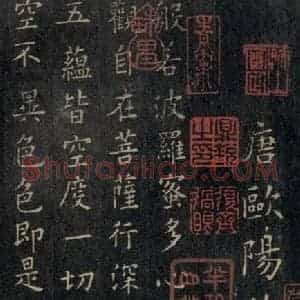 唐歐陽
般若波羅蜜多心
觀自在菩薩行深
五蘊皆空度一切
空不異色色即是
Shufaziliao.com